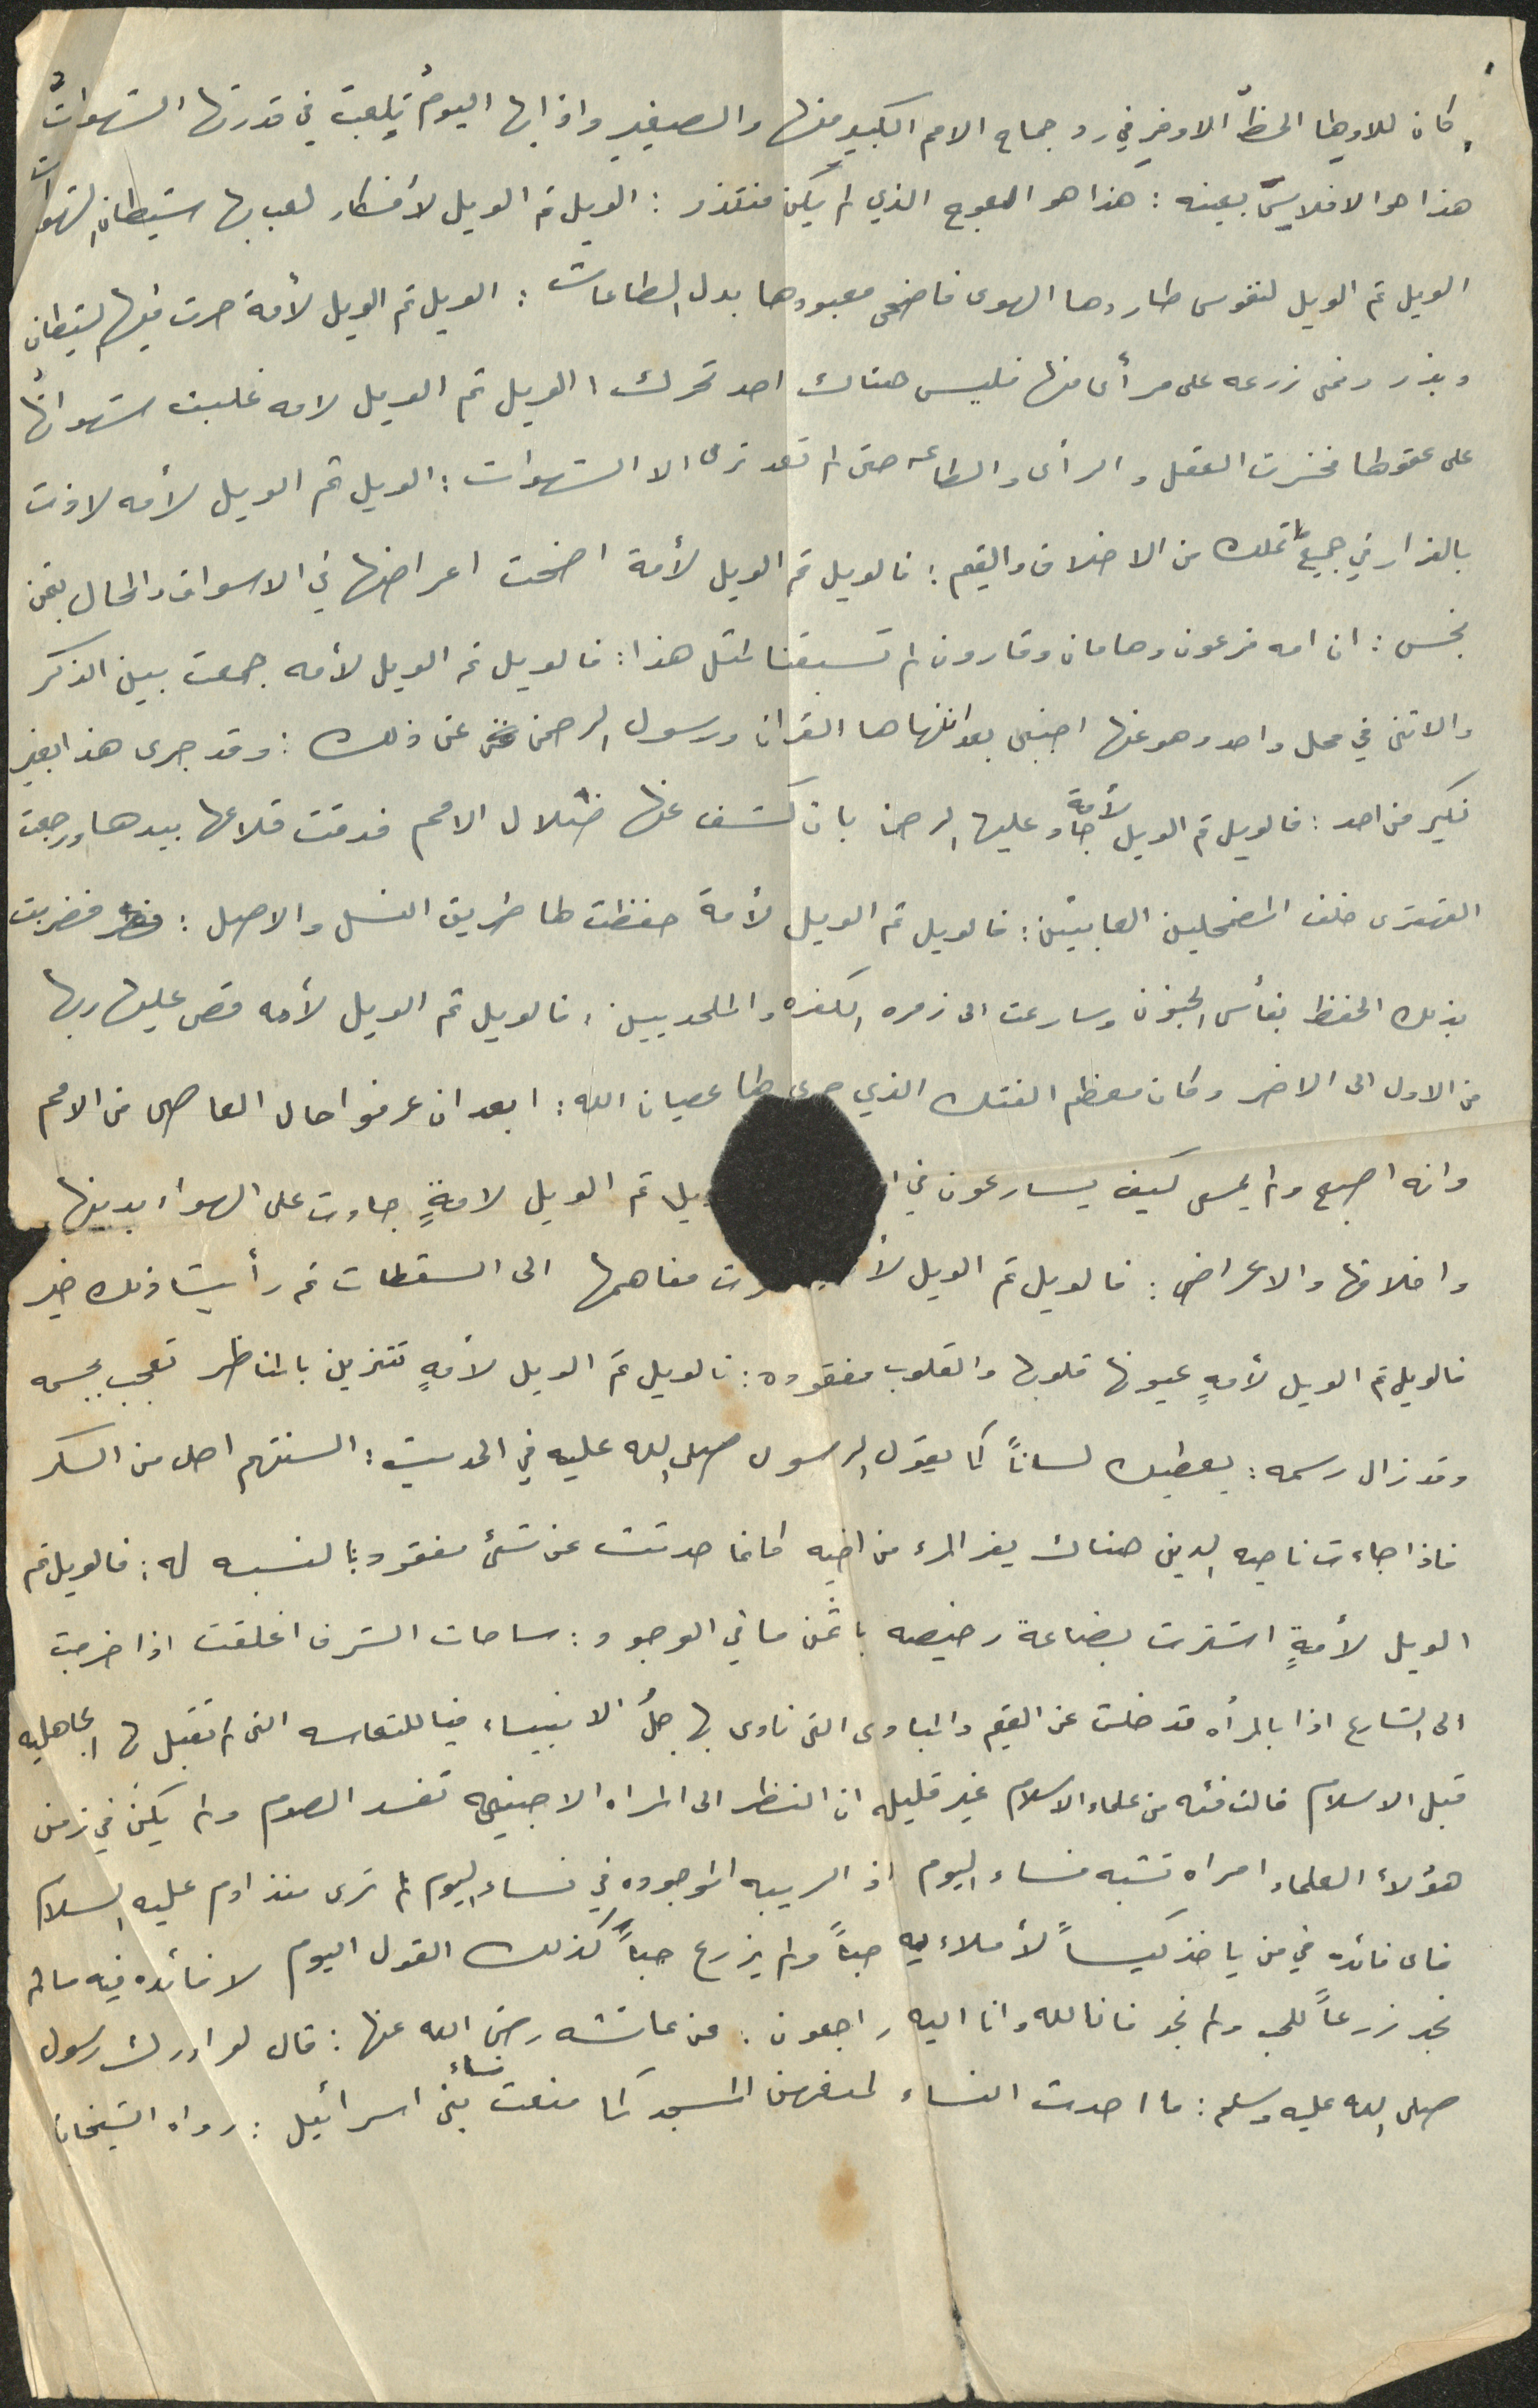 كان للاولها الحظّ الاوفر في رد جماح الامم الكبير منها والصغير واذابها اليومُ تلعبت في قدرتها الشهوات
هذا هو الافلاس بعينه : هذا هو العوج الذي لم يكن منتذر : الويل ثم الويل لأفكار لعب بها شيطان الشهوات
الويل ثم الويل لنفوس طاردها الهوى فاضحى معبودها بدل الطاعات : الويل ثم الويل لأمة حرث فيهم الشيطان
وبذر ونمى زرعه على مرأى منها فليس هناك احد تحرك ، الويل ثم الويل لامه غلبت شهواتُها
على عقولها فخسرت العقل والرأى والطاعه حتى لم تعد ترى الا الشهوات : الويل ثم الويل لأمه لاذت
بالفرار في جميع ما تملك من الاخلاق والقيم : فالويل ثم الويل لأمة اضحت اعراضها في الاسواق والمحال بثمن
بخس : ان امه فرعون وهامان وقارون لم تسبقنا لمثل هذا : فالويل ثم الويل لأمه جمعت بين الذكر
والانثى في محل واحد وهو عنها اجنبى بعد انهاها القران ورسول الرحمن عن ذلك : وقد جرى هذا بغير
نكير من احد : فالويل ثم الويل لأمة جاد عليها الرحمن بان كشف عنها ضلال الامم فدقت قلاعها بيدها ورجعت
القهقرى خلف المضمحلين العابثين : فالويل ثم الويل لأمة حفظت لها طريق النسل والاصل : فضربت
بذلك الحفظ بفأس الجنون وسارعت الى زمره الكفره والملحديين : فالويل ثم الويل لأمه قص عليها ربها
من الاول الى الاخر وكان معظم الفتك الذي جرى لها عصيان الله : ابعد ان عرفوا حال العاصى من الامم
وانه اصبح ولم يمسى كيف يسارعون في ويل ثم الويل لامةٍ جادت على الهواء بدينها
واخلاقها والاعراض : فالويل ثم الويل رت مفاهمها الى السقطات ثم رأيت ذلك خير
فالويل ثم الويل لأمهٍ عيونها قلوبها والقلوب مفقوده : فالويل ثم الويل لأمهٍ تتزين بالمناظر تعجب بجسمه
وقد زال رسمه : يعطيك لساناً كما يقول الرسول صلى الله عليه في الحديث : السنتهم احلى من السكر
فاذا جاءت ناحيه الدين هناك يفر المرء من اخيه كانما حدثت عن شئ مفقود بالنسبه له : فالويل ثم
الويل لأمةٍ اشترت بضاعة رخيصه باثمن ما في الوجود : ساحات الشرف اغلقت اذا خرجت
الى الشارع اذا بالمرأه قد خلت عن القيم والمبادى التى نادى بها جلُ الانبياء فيا للتعاسه التى لم تقبل بها الجاهليه
قبل الاسلام قالت فئه من علماء الاسلام غير قليله ان النظر الى المراه الاجنبيه تفسد الصوم ولم يكن في زمن
هؤلاء العلماء امراه تشبه نساء اليوم اذ الريبه الموجوده في نساء اليوم لم ترى منذ ادم عليه السلام
فاى فائده في من ياخذ كيساً لأملاء به حباً ولم يزرع حباً كذلك القول اليوم لا فائده فيه مالم
نجد زرعاً للحب ولم نجد فانا لله وانا اليه راجعون : عن عائشه رضى الله عنها : قال لو ادرك رسول
صلى الله عليه وسلم : ما احدث النساء لمنعهن المسجد كما منعت نساء بنى اسرائيل : رواه الشيخان